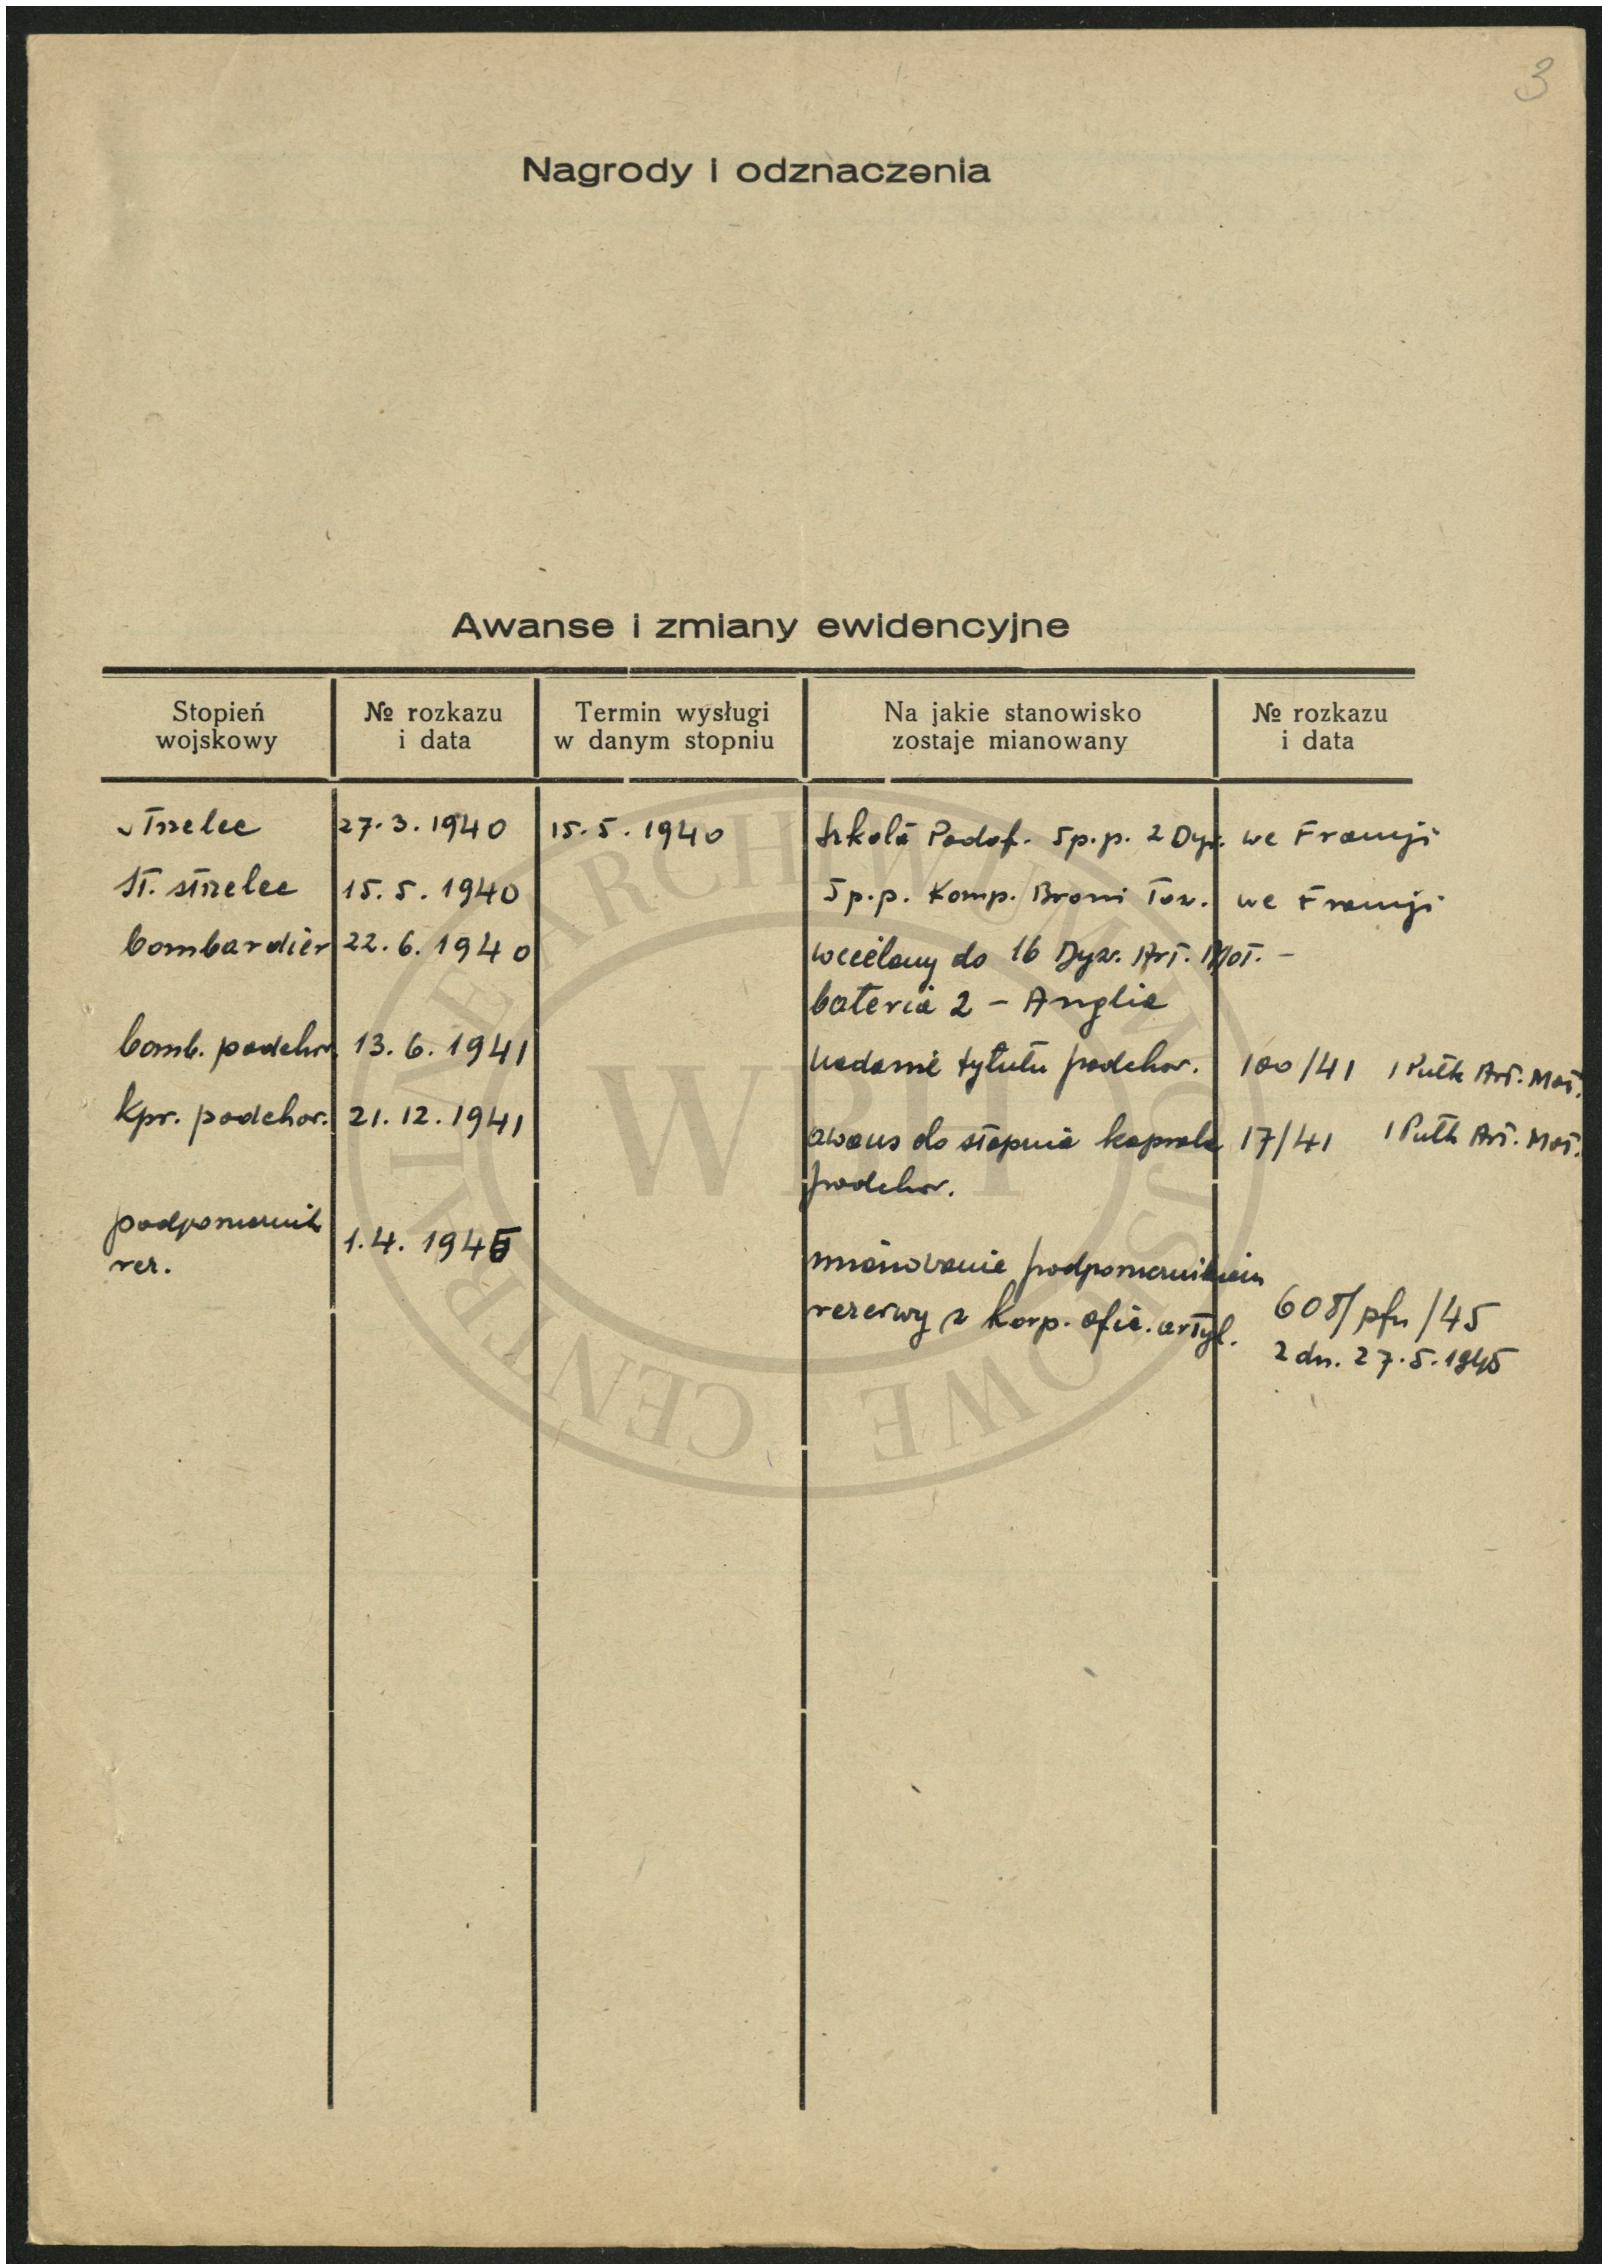 3
Nagrody i odznaczenia
Awanse i zmiany ewidencyjne
Stopień wojskowy № rozkazu i data Termin wysługi w danym stopniu Na jakie stanowisko zostaje mianowany № rozkazu i data
strzelec 27.3.1940 15.5.1940 Szkoła Podof. 5p.p. 2 Dyw. we Francji
St. strzelec 15.5.1940 5p.p. Komp. Broni Tow. we Francji
bombardier 22.6.1940 wcielony do 16 Dyw. Art. Mot. -
bateria 2 - Anglia
bomb. podchor. 13.6.1941 nadanie tytułu podchor. 100/41 1 Pułk Art. Mot.
Kpr. podchor. 21.12.1941 awans do stopnia kaprala 17/41 1 Pułk Art. Mot.
podchor.
podporucznik
rez. 1.4.1945 mianowanie podporucznikiem
rezerwy z korp. ofic. artyl. /pfn/45
z dn. 27.5.1945
CENTRALNE ARCHIWUM WOJSKOWE
WBH